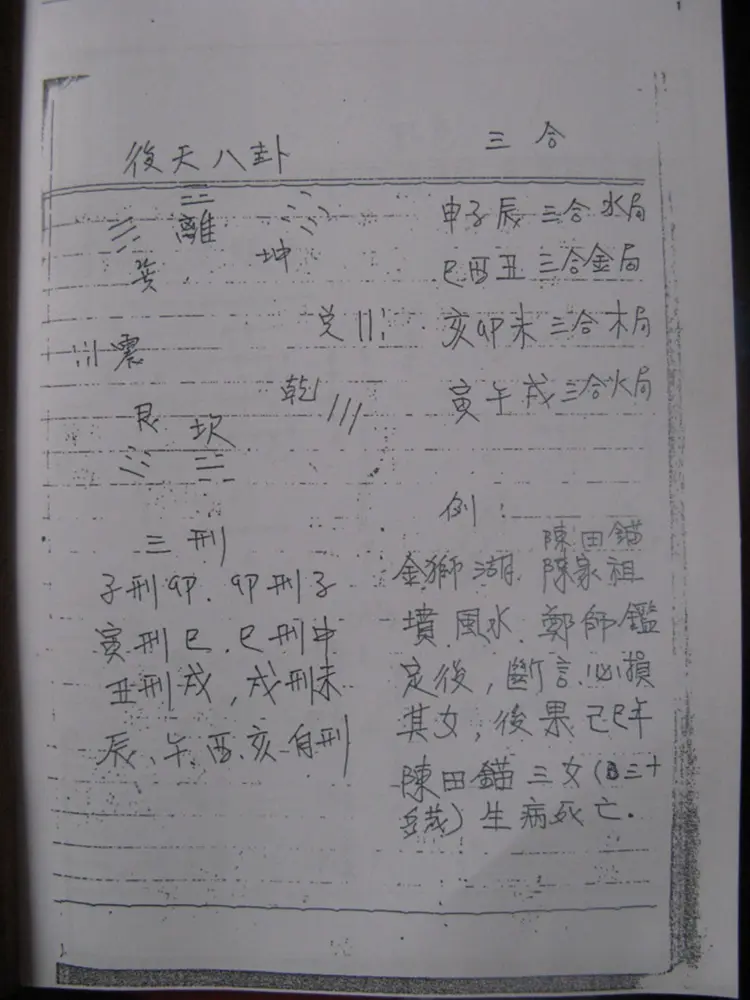 1
三合
申子辰三合水局
巳酉丑三合金局
亥卯未三合木局
寅午戌三合火局
例:
陳田錨
金獅湖. 陳家祖
墳.風水.鄭師鑑
定後,斷言.必損
其女,後果己巳年
陳田錨三女(三十
多歲)生病死亡.
後天八卦
離
坤
巽
兌
震
乾
艮
坎
三刑
子刑卯.卯刑子
寅刑巳.巳刑申
丑刑戌,戌刑未
辰、午、酉.亥自刑